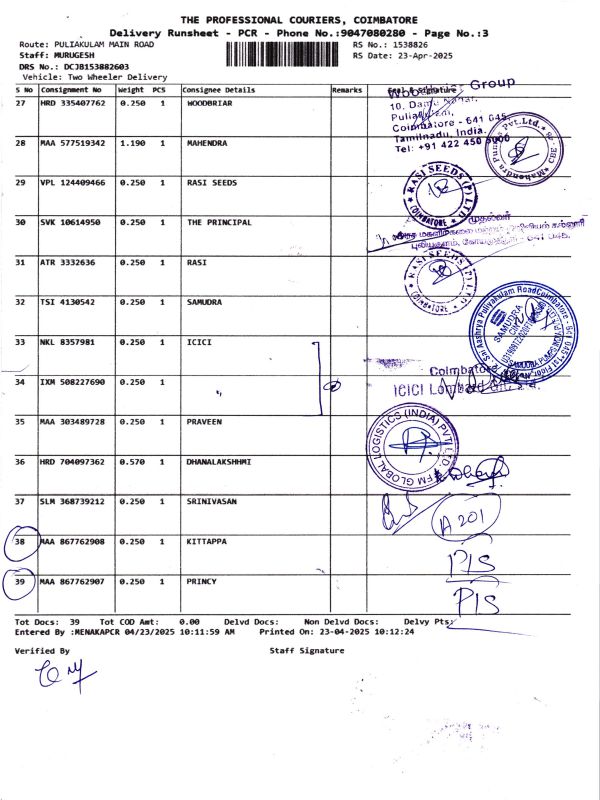 THE PROFESSIONAL COURIERS, COIMBATORE
Delivery Runsheet - PCR - Phone No.:9047080280 - Page No.:3
Route: PULIAKULAM MAIN ROAD
RS No.: 1538826
Staff: MURUGESH
RS Date: 23-Apr-2025
DRS No.: DCJB153882603
Vehicle: Two Wheeler Delivery
S No Consignment No Weight PCS Consignee Details Remarks Seal & Signature
27 HRD 335407762 0.250 1 WOODBRIAR
Group
10.
Coimbatore - 641 045.
Tamilnadu, India.
Tel: +91 422 450
28 MAA 577519342 1.190 1 MAHENDRA
29 VPL 124409466 0.250 1 RASI SEEDS
RASI SEEDS (P) LTD.
COIMBATORE
30 SVK 10614950 0.250 1 THE PRINCIPAL
முதல்வர்
641 045.
31 ATR 3332636 0.250 1 RASI
RASI SEEDS (P) LTD.
COIMBATORE
32 TSI 4130542 0.250 1 SAMUDRA
SAMUDRA
33 NKL 8357981 0.250 1 ICICI
Coimbatore
34 IXM 508227690 0.250 1
ICICI Lombard
35 MAA 303489728 0.250 1 PRAVEEN
FM GLOBAL LOGISTICS (INDIA) PVT LTD.
36 HRD 704097362 0.570 1 DHANALAKSHHMI
37 SLM 368739212 0.250 1 SRINIVASAN
A 201
38 MAA 867762908 0.250 1 KITTAPPA
P/S
39 MAA 867762907 0.250 1 PRINCY
P/S
Tot Docs: 39 Tot COD Amt: 0.00 Delvd Docs: Non Delvd Docs: Delvy Pts:
Entered By :MENAKAPCR 04/23/2025 10:11:59 AM Printed On: 23-04-2025 10:12:24
Verified By Staff Signature